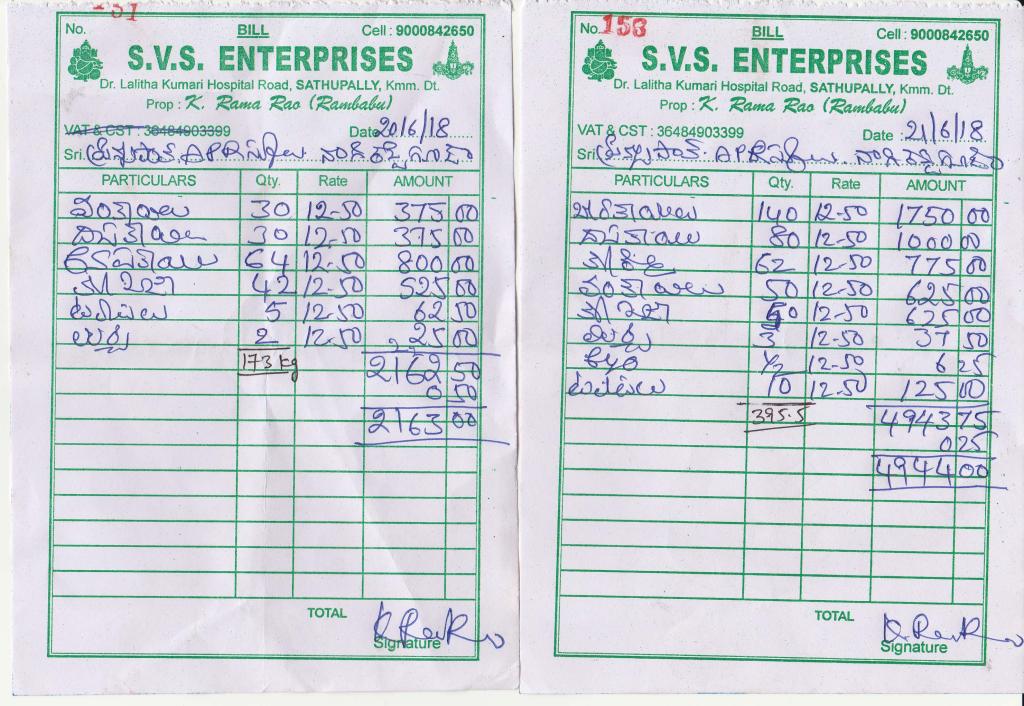 No. 151
BILL
Cell : 9000842650
S.V.S. ENTERPRISES
Dr. Lalitha Kumari Hospital Road, SATHUPALLY, Kmm. Dt.
Prop : K. Rama Rao (Rambabu)
VAT & CST : 36484903399 Date 20/6/18
Sri.
PARTICULARS Qty. Rate AMOUNT
వంకాయలు 30 12-50 375 00
దొండకాయలు 30 12-50 375 00
64 12-50 800 00
42 12-50 525 00
టమోటాలు 5 12-50 62 50
2 12-50 25 00
173 kg 2162 50
0 50
2163 00
TOTAL
Signature
No. 158
BILL
Cell : 9000842650
S.V.S. ENTERPRISES
Dr. Lalitha Kumari Hospital Road, SATHUPALLY, Kmm. Dt.
Prop : K. Rama Rao (Rambabu)
VAT & CST : 36484903399 Date : 21/6/18
Sri.
PARTICULARS Qty. Rate AMOUNT
140 12-50 1750 00
దొండకాయలు 80 12-50 1000 00
62 12-50 775 00
వంకాయలు 50 12-50 625 00
50 12-50 625 00
3 12-50 37 50
½ 12-50 6 25
10 12-50 125 00
395.5 4943 75
0 25
4944 00
TOTAL
Signature